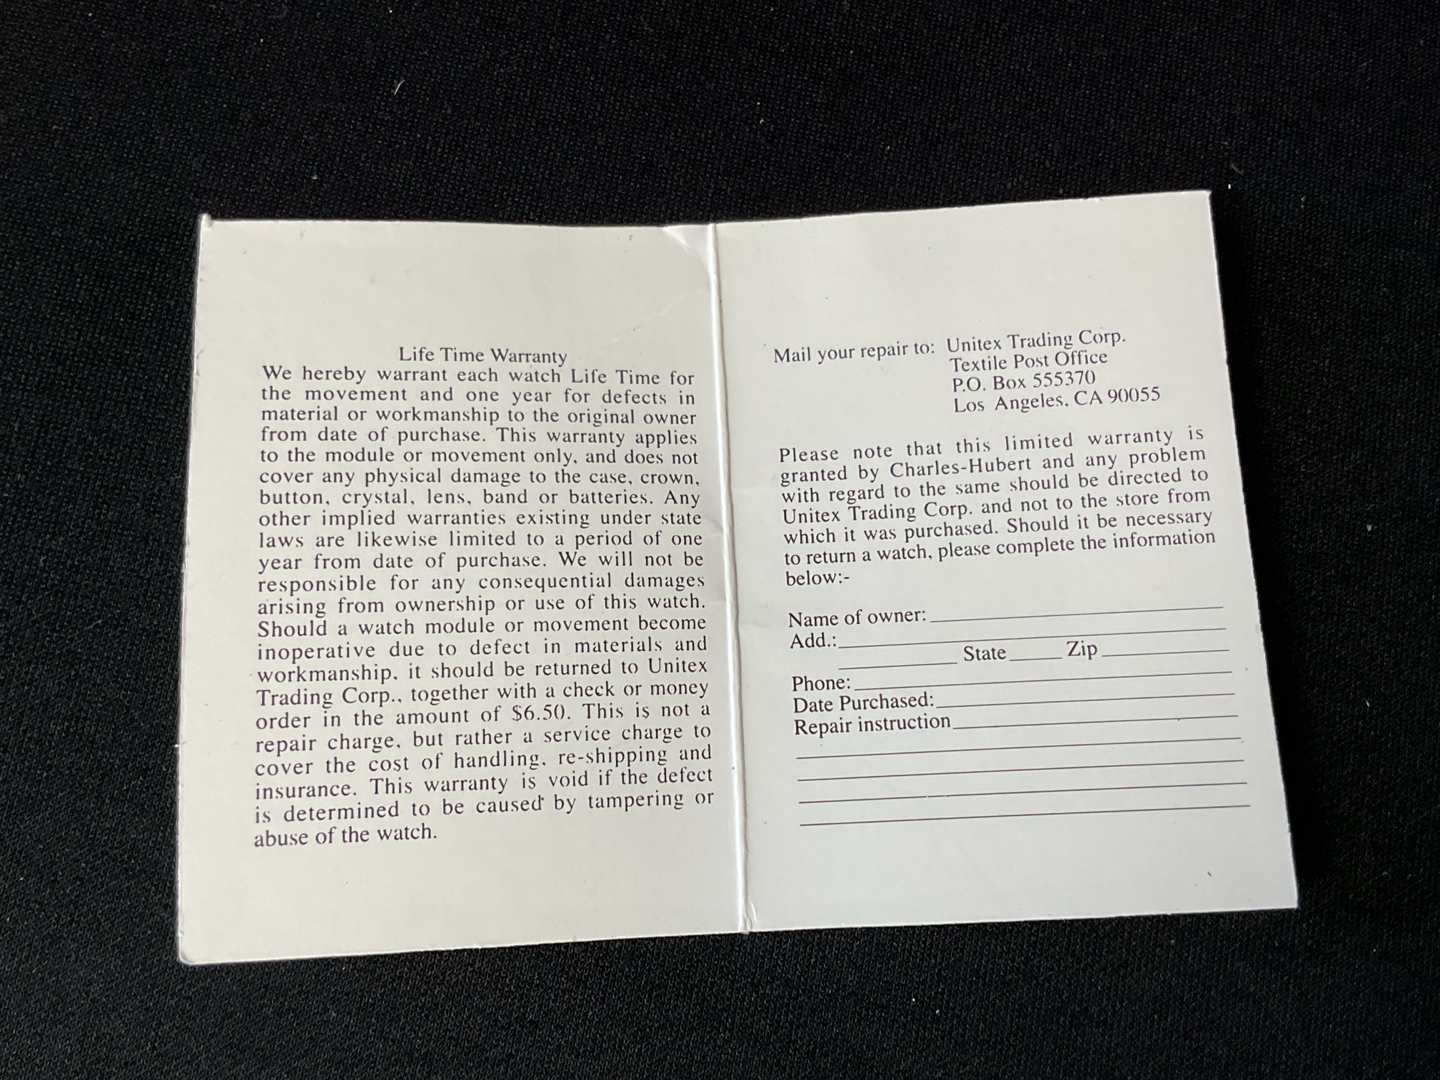 Life Time Warranty
We hereby warrant each watch Life Time for
the movement and one year for defects in
material or workmanship to the original owner
from date of purchase. This warranty applies
to the module or movement only, and does not
cover any physical damage to the case, crown,
button, crystal, lens, band or batteries. Any
other implied warranties existing under state
laws are likewise limited to a period of one
year from date of purchase. We will not be
responsible for any consequential damages
arising from ownership or use of this watch.
Should a watch module or movement become
inoperative due to defect in materials and
workmanship, it should be returned to Unitex
Trading Corp., together with a check or money
order in the amount of $6.50. This is not a
repair charge, but rather a service charge to
cover the cost of handling, re-shipping and
insurance. This warranty is void if the defect
is determined to be caused by tampering or
abuse of the watch.
Mail your repair to: Unitex Trading Corp.
Textile Post Office
P.O. Box 555370
Los Angeles, CA 90055
Please note that this limited warranty is
granted by Charles-Hubert and any problem
with regard to the same should be directed to
Unitex Trading Corp. and not to the store from
which it was purchased. Should it be necessary
to return a watch, please complete the information
below:-
Name of owner:
Add.:
State Zip
Phone:
Date Purchased:
Repair instruction